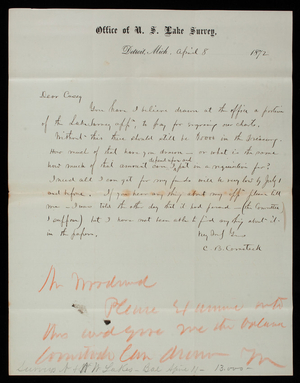 Office of U. S. Lake Survey,
Detroit, Mich. April 8 1872
Dear Casey
You have I believe drawn at the office a portion
of the Lake Survey app., to pay for engraving our charts.
Without this there should still be in the Treasury
How much of that have you drawn — or what is the same
how much of that amount can I put in a requisition for?
I want all I can get for my funds will be very low by July 1
and before. If you hear any thing about my app. please tell
me — I was told the other day that it had passed — (the Committee
I suppose) but I have not been able to find any thing about it
in the papers.
Very Truly Yours
C. B. Comstock
Mr Woodward
Please Examine into
this and give me the balance
Comstock Can draw